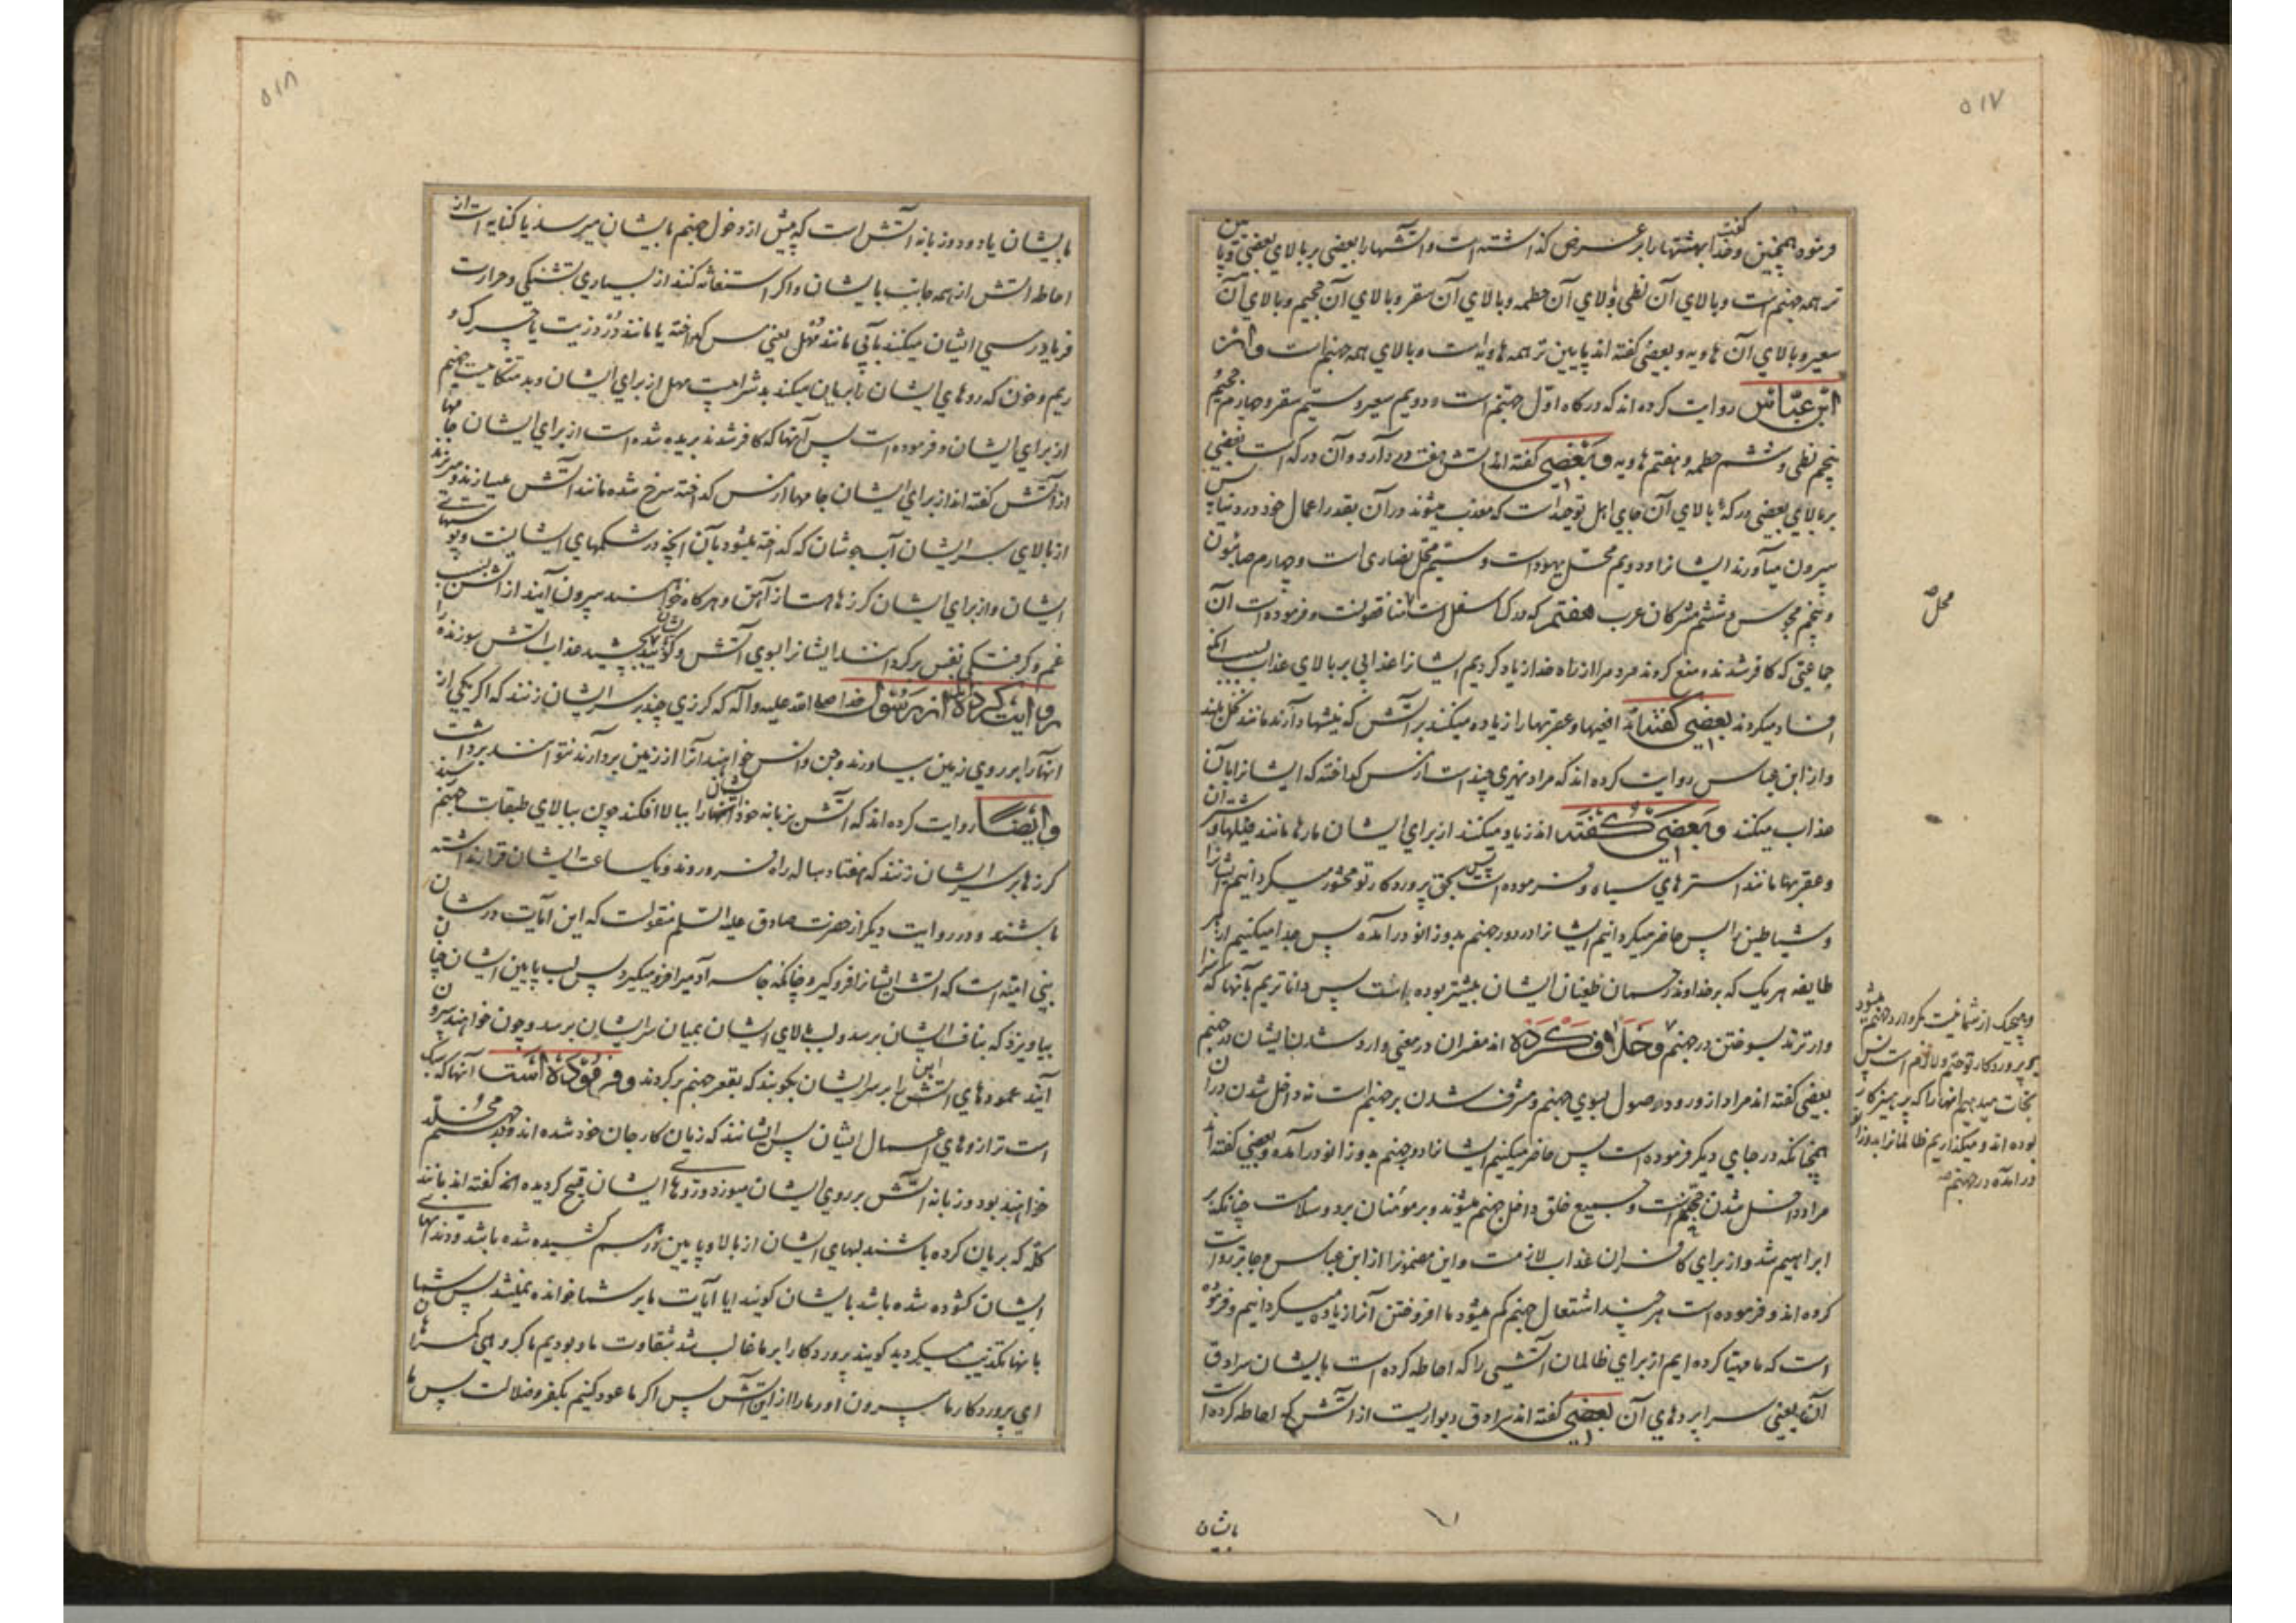 ۵۱۷
فرموده همچنین و خدا بهشتها را بر عرض گذاشته است و آتشها را بعضی بر بالای بعضی و پا
گفت
یین
تر همه جهنم است و بالای آن لظی و بالای آن حطمه و بالای آن سقر و بالای آن جحیم و بالای آن
سعیر و بالای آن هاویه و بعضی گفته اند پایین تر همه هاویه است و بالای همه جهنم است و از
ابن عباس روایت کرده اند که درگاه اوّل جهنم است و دویم سعیر و سیّم سقر و چهارم جحیم و
پنجم لظی و ششم حطمه و هفتم هاویه و بعضی گفته اند آتش هفت در دارد و آن درکه است بعضی
بر بالای بعضی درکه بالای آن جای اهل توحید است که معذب میشوند در آن بقدر اعمال خود در دنیا پس
بیرون میآورند ایشانرا و دویم محل یهود است و سیّم محل نصاری است و چهارم صابئون
و پنجم مجوس و ششم مشرکان عرب هفتم که درک اسفل است منافقونست و فرموده است آن
جماعتی که کافر شدند و منع کردند مردم را از راه خدا زیاد کردیم ایشانرا عذابی بر بالای عذاب بسبب آنکه
افساد میکردند بعضی گفته‌اند افعیها و عقربها را زیاده میکنند بر آتش که نیشها دارند مانند نخل بلند
و از ابن عباس روایت کرده اند که مراد نهری چند است از مس گداخته که ایشانرا بآن
عذاب میکنند و بعضی گفته اند زیاد میکنند از برای ایشان مارها مانند فیلها و شتران
و عقربها مانند استرهای سیاه و فرموده است پس بحق پروردگار تو محشور میگردانیم ایشانرا
و شیاطین را پس حاضر میگردانیم ایشانرا در دور جهنم بدو زانو درآمده پس جدا میکنیم از هر
طایفه هر یک که بر خداوند رحمان طغیان ایشان بیشتر بوده باشد پس داناتریم بآنها که سزا
وارترند بسوختن در جهنم و خلاف کرده اند مفسران در معنی وارد شدن ایشان در جهنم
بعضی گفته اند مراد از ورود وصول بسوی جهنم و مشرف شدن بر جهنم است نه داخل شدن در آن
همچنانکه در جای دیگر فرموده است پس حاضر میکنیم ایشانرا دور جهنم بدو زانو درآمده و بعضی گفته اند
مراد داخل شدن جهنم است و جمیع خلق داخل جهنم میشوند و بر مؤمنان برد و سلامت چنانکه بر
ابراهیم شد و از برای کافران عذاب لازمست و این مضمونرا از ابن عباس و جابر روایت
کرده اند و فرموده است هر چند اشتعال جهنم کم میشود ما افروختن آنرا زیاده میگردانیم و فرموده
است که ما مهیا کرده ایم از برای ظالمان آتشی را که احاطه کرده است بایشان سرادق
آن یعنی سراپردهای آن بعضی گفته اند سرادق دیواریست از آتش که احاطه کرده است
محل
و هیچیک از شما نیست مگر وارد جهنم میشود
بر پروردگار تو حتم و لازم است پس
نجات میدهیم آنها را که پرهیزکار
بوده اند و میگذاریم ظالمانرا بدو زانو
درآمده در جهنم
بایشان
۵۱۸
بایشان یا دود و زبانه آتش است که پیش از دخول جهنم بایشان میرسد یا کنایه است از
احاطه آتش از همه جانب بایشان و اگر استغاثه کنند از بسیاری تشنگی و حرارت
فریادرسی ایشان میکنند بآبی مانند مُهل یعنی مس گداخته یا مانند دُرد زیت یا چرک و
ریم و خون که روهای ایشان را بریان میکند بد شرابیست مهل از برای ایشان و بد متکائیست جهنم
از برای ایشان و فرموده است پس آنها که کافر شدند بریده شده است از برای ایشان جامها
از آتش گفته اند از برای ایشان جامها از مس گداخته سرخ شده مانند آتش میسازند و میریزند
از بالای سر ایشان آب جوشان که گداخته میشود بآن آنچه در شکمهای ایشانست و پوستهای
ایشان و از برای ایشان گرزهاست از آهن و هر گاه خواهند بیرون آیند از آتش بسبب
غم و گرفتگی نفس برگردانند ایشانرا بسوی آتش و گویند بچشید عذاب آتش سوزنده را
روایت کرده‌اند از رسول خدا صلی الله علیه و آله که گرزی چند بر سر ایشان زنند که اگر یکی از
آنها را بر روی زمین بیاورند و جن و انس خواهند آنرا از زمین بردارند نتوانند برداشت
و ایضاً روایت کرده اند که آتش بزبانه خود ایشانرا ببالا افکند چون ببالای طبقات جهنم رسند
گرزها بر سر ایشان زنند که هفتاد ساله راه فرو روند و یکساعت ایشان قرار نداشته
باشند و در روایت دیگر از حضرت صادق علیه السلم منقولست که این آیات در شان
بنی امیّه است که آتش ایشانرا فرو گیرد چنانکه جامه آدمیرا فرو میگیرد پس لب پایین ایشان چنان
بیاویزد که بناف ایشان برسد و لب بالای ایشان بمیان سر ایشان برسد و چون خواهند بیرون
آیند عمودهای آتش را بر سر ایشان بکوبند که بقعر جهنم برگردند و فرموده است آنها که سبک
است ترازوهای اعمال ایشان پس ایشانند که زیان کار جان خود شده اند و در جهنم مخلد
خواهند بود و زبانه آتش بر روی ایشان میوزد و روهای ایشان قبیح گردیده است گفته اند مانند
کلّه که بریان کرده باشند لبهای ایشان از بالا و پایین بر هم کشیده شده باشد و دندانهای
ایشان گشوده شده باشد بایشان گویند ایا آیات ما بر شما خوانده نمیشد پس شما
بآنها تکذیب میکردید گویند پروردگارا بر ما غالب شد شقاوت ما و بودیم ما گروهی گمراهان
ای پروردگار ما بیرون آور ما را از این آتش پس اگر ما عود کنیم بکفر و ضلالت پس ما